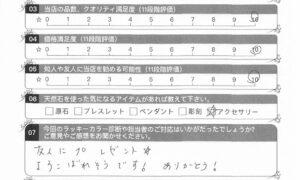 03 当店の品数、クオリティ満足度（11段階評価）
0 1 2 3 4 5 6 7 8 9 10
04 価格満足度（11段階評価）
0 1 2 3 4 5 6 7 8 9 10
05 知人や友人に当店を勧める可能性（11段階評価）
0 1 2 3 4 5 6 7 8 9 10
06 天然石を使った気になるアイテムがあれば教えて下さい。
□原石 □ブレスレット □ペンダント □彫刻 □アクセサリー
07 今回のラッキーカラー診断や担当者のご対応はいかがだったでしょうか？
ご意見やご感想をお聞かせください。
友人にプレゼント☆
よろこばれそうです！ ありがとう！